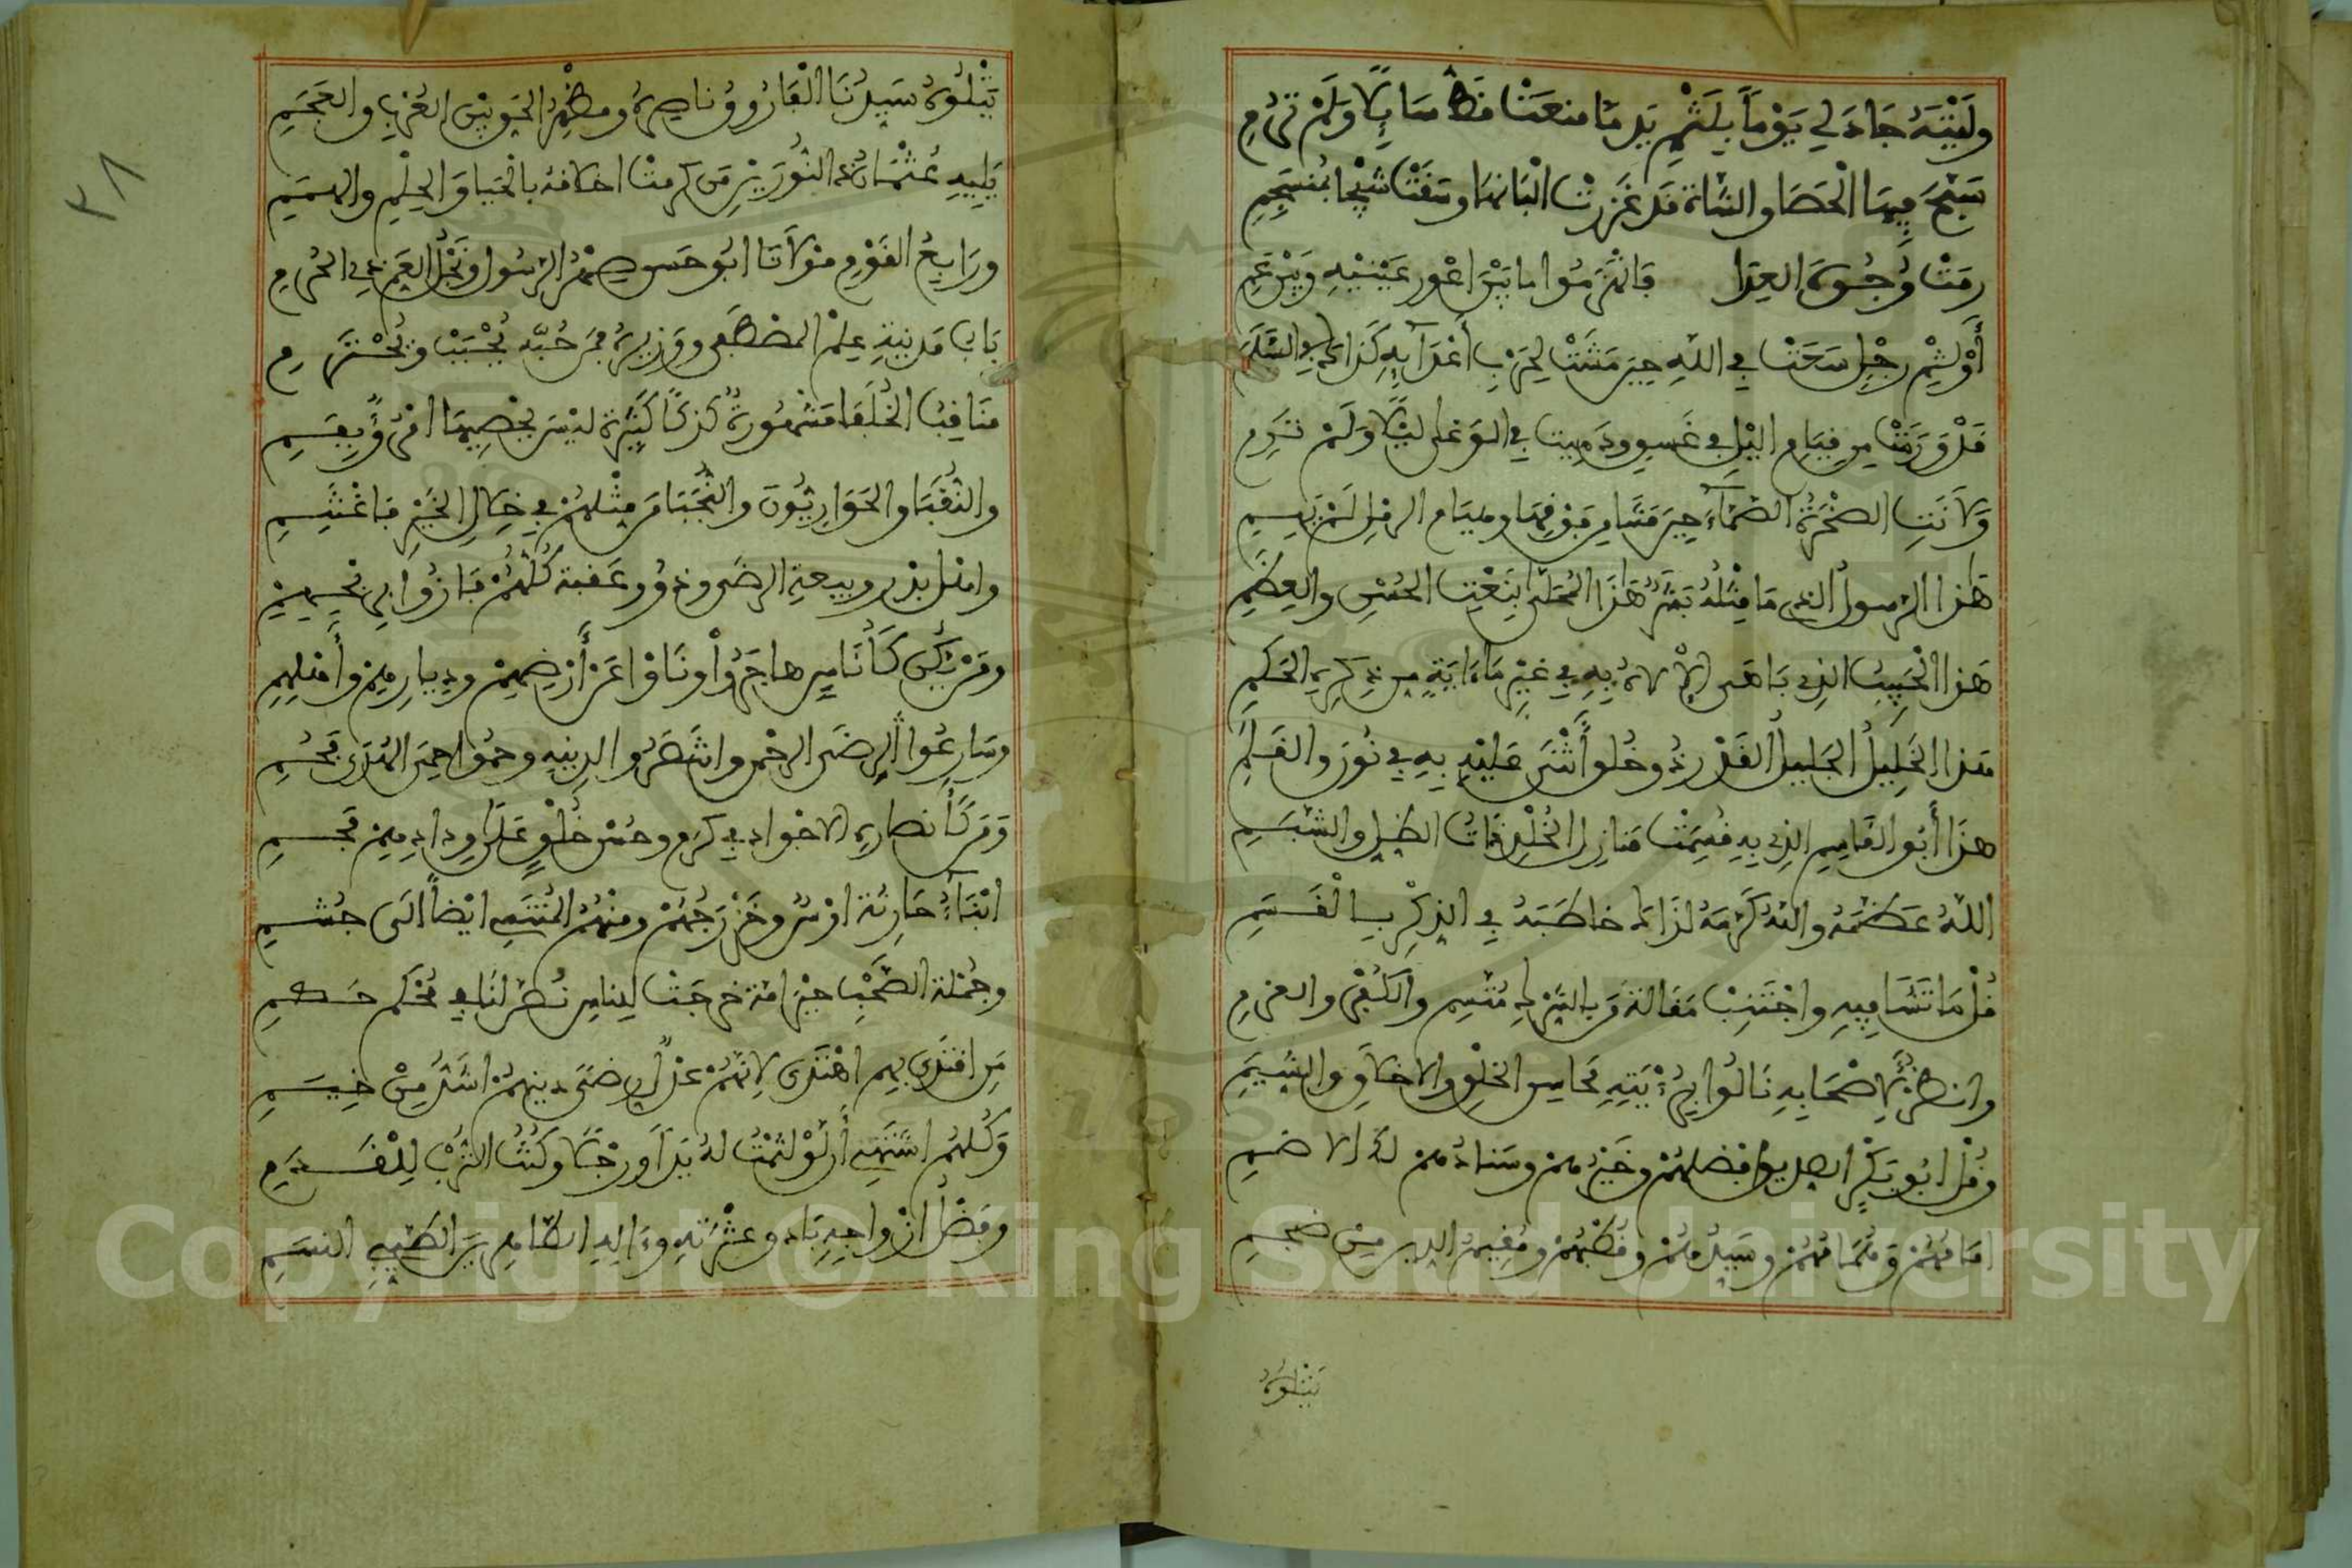 وليته جاد لي يوما بلثم يد ما منعت قط سايلا ولم ترم
سبح فيها الحصا والشاة قد غزرت البانها وسقت شيخا بمنسجم
رمت وجوه العدا فانهزموا ما بين اعور عينيه وبين عم
أو لثم رجل سعت في الله حين مشت لحرب أعدآيه كذا إلى السلم
قد ورمت من قيام اليل في غسق ودميت في الوغى ليلا ولم ترم
ولانت الصخرة الصمآء حين مشا من فوقها وهيام الرمل لم يسم
هذا الرسول الذي ما مثله بشر هذا المحلى بنعت الحسن والعظم
هذا الحبيب الذي باهى الإلاه به في غير ما ءاية من ذكره الحكم
هذا الخليل الجليل القدر ذو خلق أثنى عليه به في نور والقلم
هذا أبو القاسم الذي به قسمت منازل الخلق ذات الظل والشبم
الله عظمه والله كرمه لذاك خاطبه في الذكر بالقسم
قل ما تشا فيه واجتنب مقالة من بالشرك متسم والكفر والعزم
وانظر لأصحابه نالوا برؤيته محاسن الخلق والاخلاق والشيم
وقل ابو بكر الصديق افضلهم وخيرهم وسناهم لدا الاضم
امامهم وهمامهم وسيدهم وقطبهم ومقيم الدين من ضجم
يتلوه
يتلوه سيدنا الفاروق ناصره ومظهر الحق بين العرب والعجم
يليه عثمان ذو النورين من كرمت اخلاقه بالحيا والحلم والهمم
ورابع القوم مولانا ابو حسن صهر الرسول ونجل العم في الحرم
باب مدينة علم المصطفى ووزيره فمن حبه يحبب ويحترم
مناقب الخلفا مشهورة كذكا كثيرة ليس يحصيها امرؤ بفم
والنقبا والحواريون والنجبا من مثلهم في خلال الخير فاغتنم
واهل بدر وبيعة الرضى وذوو عقبة كلهم فازوا بربحهم
ومن يكن كأناس هاجروا ونأوا عن أرضهم وديارهم وأهلهم
وسارعوا لرضى الرحمن وانتصروا لدينه وحموا حمى الهدى فحم
ومن كأنصاره الاجواد في كرم وحسن خلق على ودادهم فحم
ابنآء حارثة اوس وخزرجهم ومنهم المنتمي ايضا الى جشم
وجملة الصحب خير امة خرجت للناس نصر لنا في محكم حكم
من اقتدى بهم اهتدى لانهم عدل رضى دينهم اشد من خيم
وكلهم اشتهي أن لو لثمت له يدا ورجلا وكنت الترب للقدم
وفضل ازواجه باد وعشرته وءاله الطاهرين الطيبي النسم
٣٨
Copyright © King Saud University